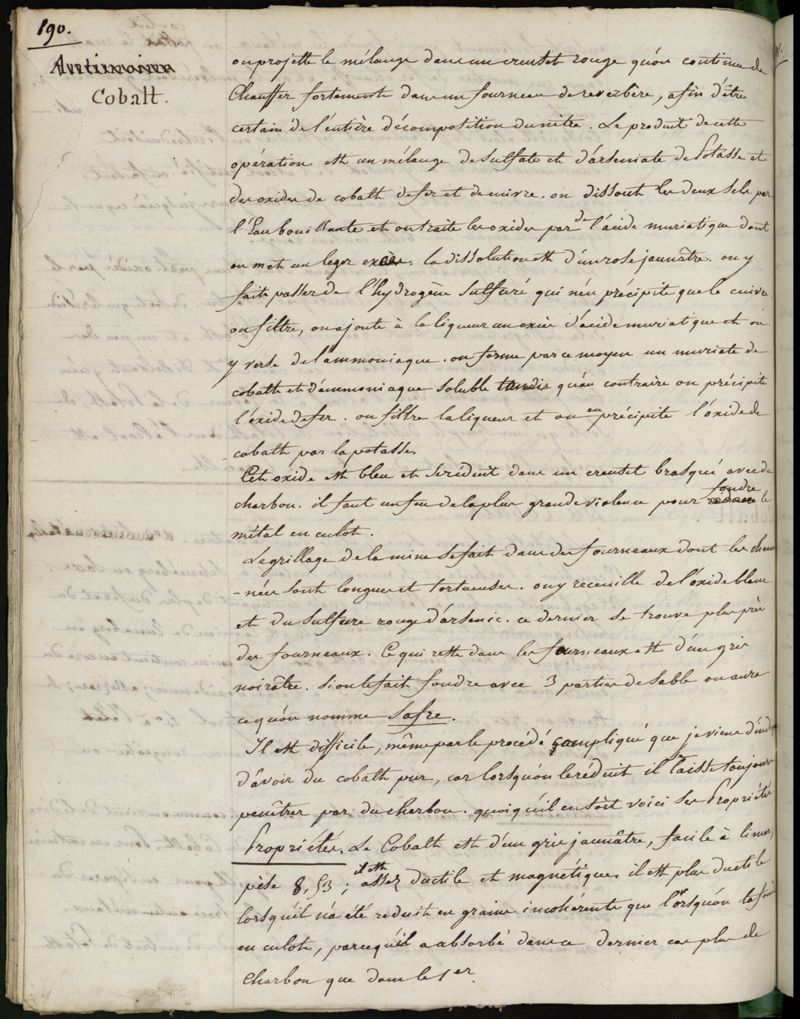 190.
Antimoine
Cobalt.
on projette le mélange dans un creuset rouge qu'on continue de
chauffer fortement dans un fourneau de reverbère, afin d'être
certain de l'entière décomposition du nitre. Le produit de cette
opération est un mélange de sulfate et d'arseniate de Potasse et
des oxides de cobalt de fer et de cuivre. on dissout les deux sels par
l'Eau bouillante et on traite les oxides par de l'acide muriatique dont
on met un leger excès. la dissolution est d'un rose jaunâtre. on y
fait passer de l'hydrogène sulfuré qui n'en précipite que le cuivre
on filtre, on ajoute à la liqueur un excès d'acide muriatique et on
y verse de l'ammoniaque. on forme par ce moyen un muriate de
cobalt et d'ammoniaque soluble tandis qu'au contraire on précipite
l'oxide de fer. on filtre la liqueur et on en précipite l'oxide de
cobalt par la potasse.
Cet oxide est bleu et se réduit dans un creuset brasqué avec du
charbon. il faut un feu de la plus grande violence pour fondre le
métal en culot.
Le grillage de la mine se fait dans des fourneaux dont les chemi
-nées sont longues et tortueuses. on y receuille de l'oxide blanc
et du sulfure rouge d'arsenic. ce dernier se trouve plus près
des fourneaux. Ce qui reste dans les fourneaux est d'un gris
noirâtre. si on le fait fondre avec 3 parties de sable on aura
ce qu'on nomme Safre.
Il est difficile, même par le procédé compliqué que je viens d'ind
d'avoir du cobalt pur, car lorsqu'on le réduit il laisse toujours
penêtrer par du charbon. quoiqu'il en soit voici ses Propriétés
Propriétés. Le Cobalt est d'un gris jaunâtre, facile à limer,
pèse 8,53; il est assez ductile et magnétique. il est plus ductile
lorsqu'il n'a été reduit en grains incohérents que lorsqu'on l'a fondu
en culots, parcequ'il a absorbé dans ce dernier cas plus de
charbon que dans le 1er.